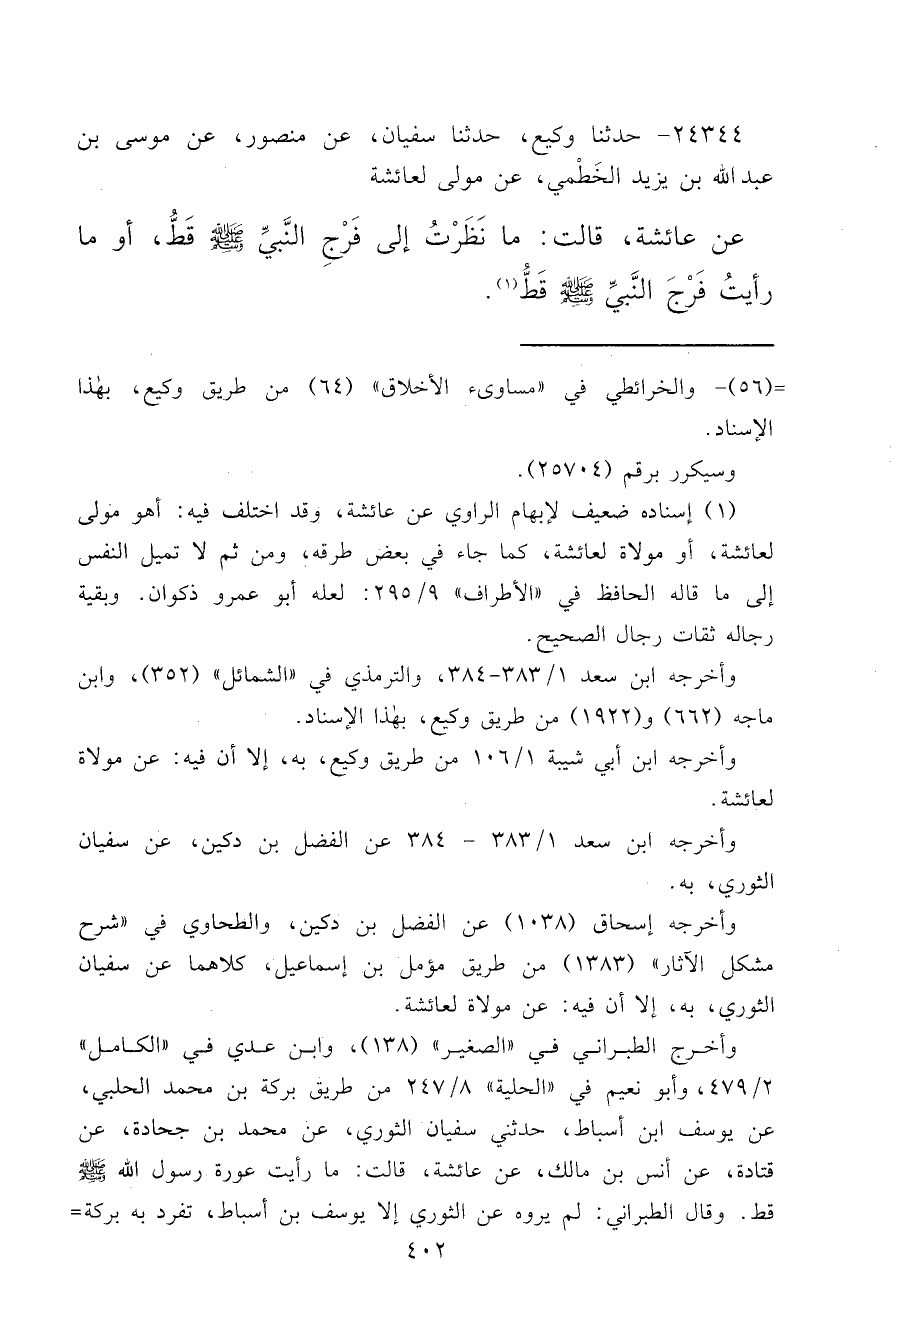 ٢٤٣٤٤- حدثنا وكيع، حدثنا سفيان، عن منصور، عن موسى بن
عبد الله بن يزيد الخَطْمي، عن مولى لعائشة
عن عائشة، قالت: ما نَظَرْتُ إلى فَرْجِ النَّبيِّ ﷺ قَطُّ، أو ما
رأيتُ فَرْجَ النَّبيِّ ﷺ قَطُّ(١).
=(٥٦)- والخرائطي في «مساوىء الأخلاق» (٦٤) من طريق وكيع، بهٰذا
الإسناد.
وسيكرر برقم (٢٥٧٠٤).
(١) إسناده ضعيف لإبهام الراوي عن عائشة، وقد اختلف فيه: أهو مولى
لعائشة، أو مولاة لعائشة، كما جاء في بعض طرقه، ومن ثم لا تميل النفس
إلى ما قاله الحافظ في «الأطراف» ٢٩٥/٩: لعله أبو عمرو ذكوان. وبقية
رجاله ثقات رجال الصحيح.
وأخرجه ابن سعد ٣٨٣/١-٣٨٤، والترمذي في «الشمائل» (٣٥٢)، وابن
ماجه (٦٦٢) و(١٩٢٢) من طريق وكيع، بهٰذا الإسناد.
وأخرجه ابن أبي شيبة ١٠٦/١ من طريق وكيع، به، إلا أن فيه: عن مولاة
لعائشة.
وأخرجه ابن سعد ٣٨٣/١ - ٣٨٤ عن الفضل بن دكين، عن سفيان
الثوري، به.
وأخرجه إسحاق (١٠٣٨) عن الفضل بن دكين، والطحاوي في «شرح
مشكل الآثار» (١٣٨٣) من طريق مؤمل بن إسماعيل، كلاهما عن سفيان
الثوري، به، إلا أن فيه: عن مولاة لعائشة.
وأخرج الطبراني في «الصغير» (١٣٨)، وابن عدي في «الكامل»
٤٧٩/٢، وأبو نعيم في «الحلية» ٢٤٧/٨ من طريق بركة بن محمد الحلبي،
عن يوسف ابن أسباط، حدثني سفيان الثوري، عن محمد بن جحادة، عن
قتادة، عن أنس بن مالك، عن عائشة، قالت: ما رأيت عورة رسول الله ﷺ
قط. وقال الطبراني: لم يروه عن الثوري إلا يوسف بن أسباط، تفرد به بركة=
٤٠٢